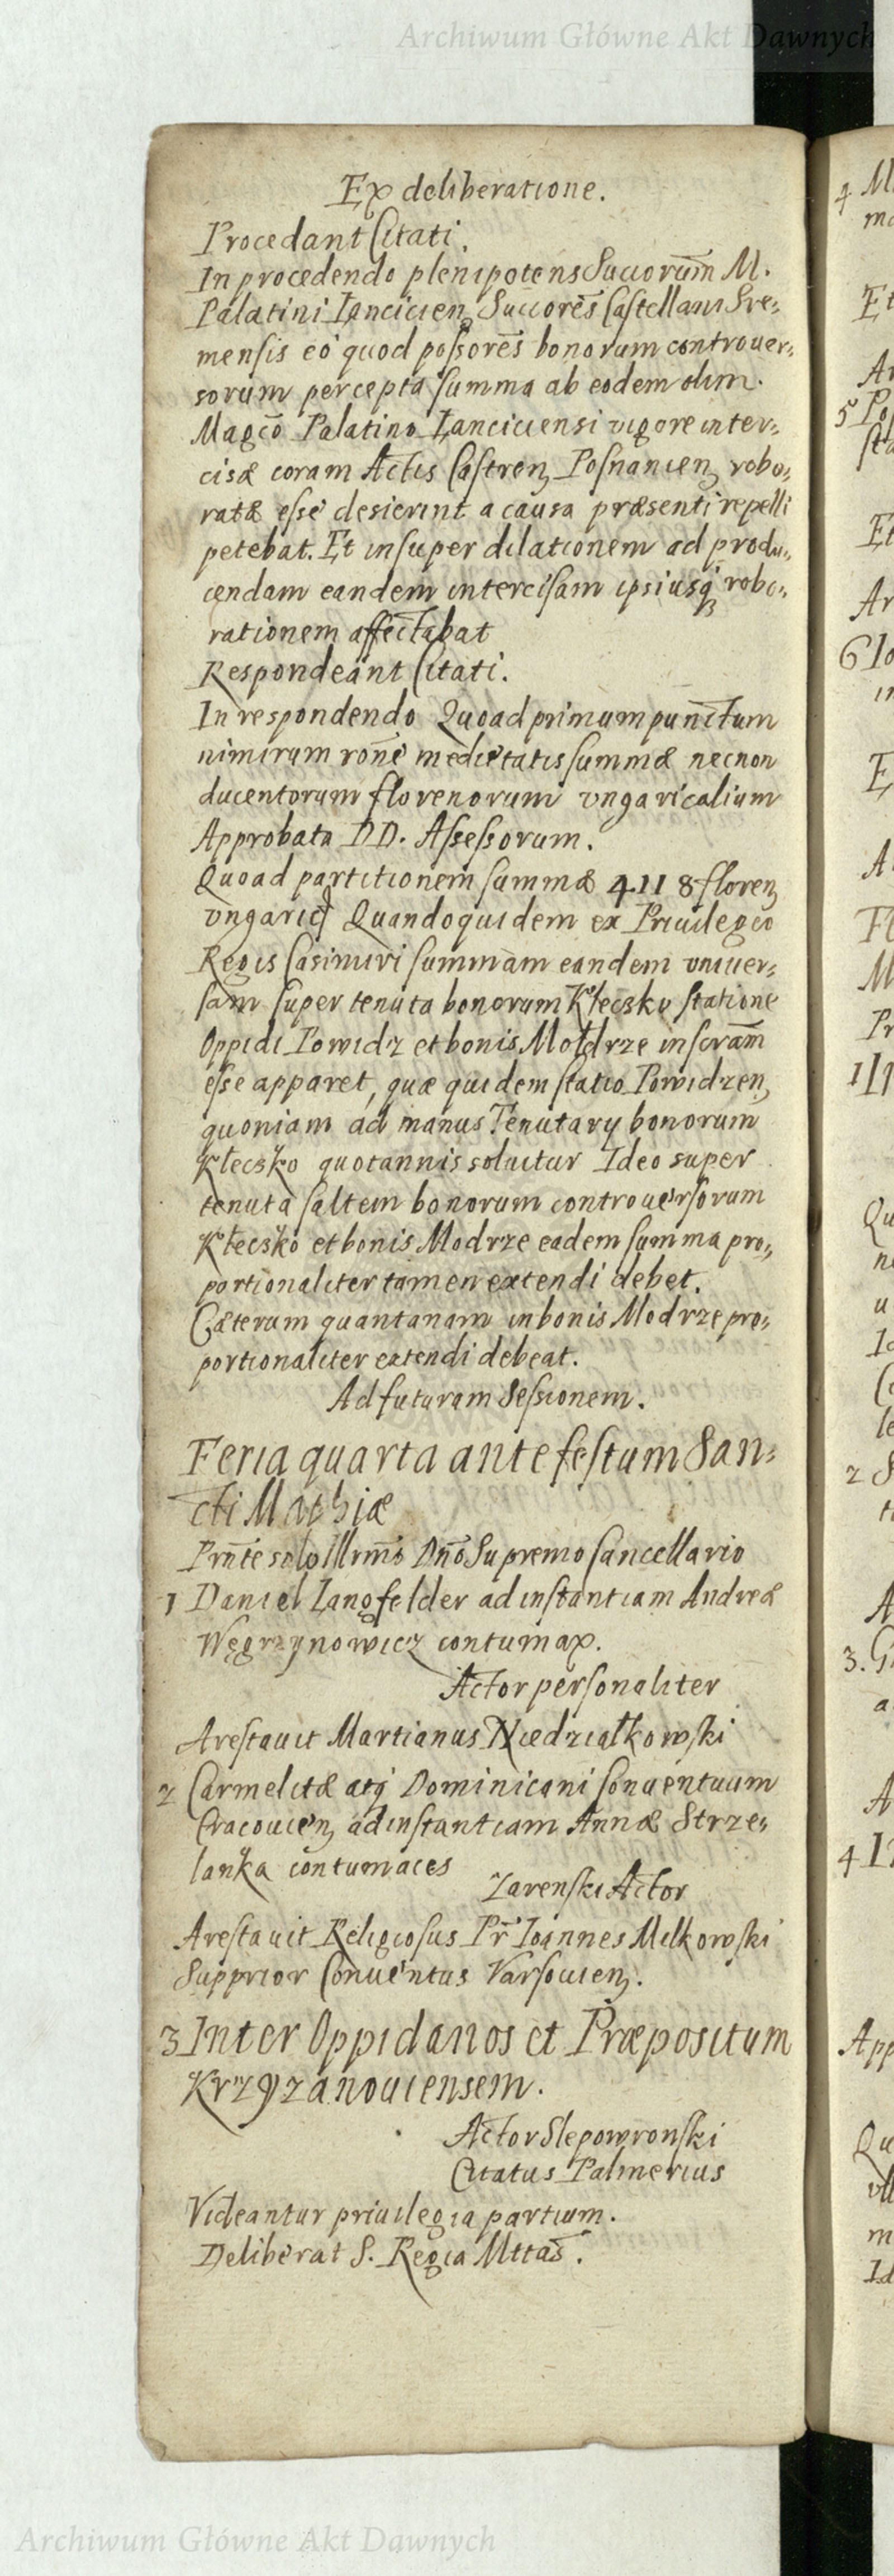 Archiwum Główne Akt Dawnych
Ex deliberatione.
Procedant Citati.
In procedendo plenipotens Succorum̃ M.
Palatini Lancicien Succorẽs Castellani Sre=
mensis eò quod possorẽs bonorum controuer=
sorum percepta summa ab eodem olim.
Magcõ Palatino Lanciciensi vigore inter=
cisæ coram Actis Castren Posnanien robo=
ratæ esse desierint a causa præsenti repelli
petebat. Et insuper dilationem ad produ=
cendam eandem intercisam ipsiusq robo=
rationem affectabat
Respondeant Citati.
In respondendo Quoad primum punctum
nimirum roñe medietatis summæ necnon
ducentorum florenorum vngaricalium
Approbata DD. Assessorum.
Quoad partitionem summæ 4118 floren
vngaric Quandoquidem ex Priuilegio
Regis Casimiri summam eandem vniuer=
sam super tenuta bonorum Kłecsko statione
Oppidi Powidz et bonis Modrze inscram̃
esse apparet, quæ quidem statio Powidzen
quoniam ad manus Tenutary bonorum
Kłecsko quotannis soluitur Ideo super
tenuta saltem bonorum controuersorum
Kłecsko et bonis Modrze eadem summa pro=
portionaliter tamen extendi debet.
Cæterum quantanam in bonis Modrze pro=
portionaliter extendi debeat.
Ad futuram Sessionem.
Feria quarta ante festum San=
cti Mathiæ
Prñte solo Illrmõ Dño Supremo Cancellario
1 Daniel Langfelder ad instantiam Andreæ
Węgrzynowicz contumax.
Actor personaliter
Arestauit Martianus Niedziałkowski
2 Carmelitæ atq Dominicani Conuentuum
Cracouien ad instantiam Annæ Strze=
lanka contumaces
Zarenski Actor
Arestauit Religiosus Pr̃ Ioannes Milkowski
Supprior Conuentus Varsouien.
3 Inter Oppidanos et Præpositum
Krzyzanouiensem.
Actor Slepowronski
Citatus Palmerius
Videantur priuilegia partium.
Deliberat S. Regia Mttas̃.
Archiwum Główne Akt Dawnych